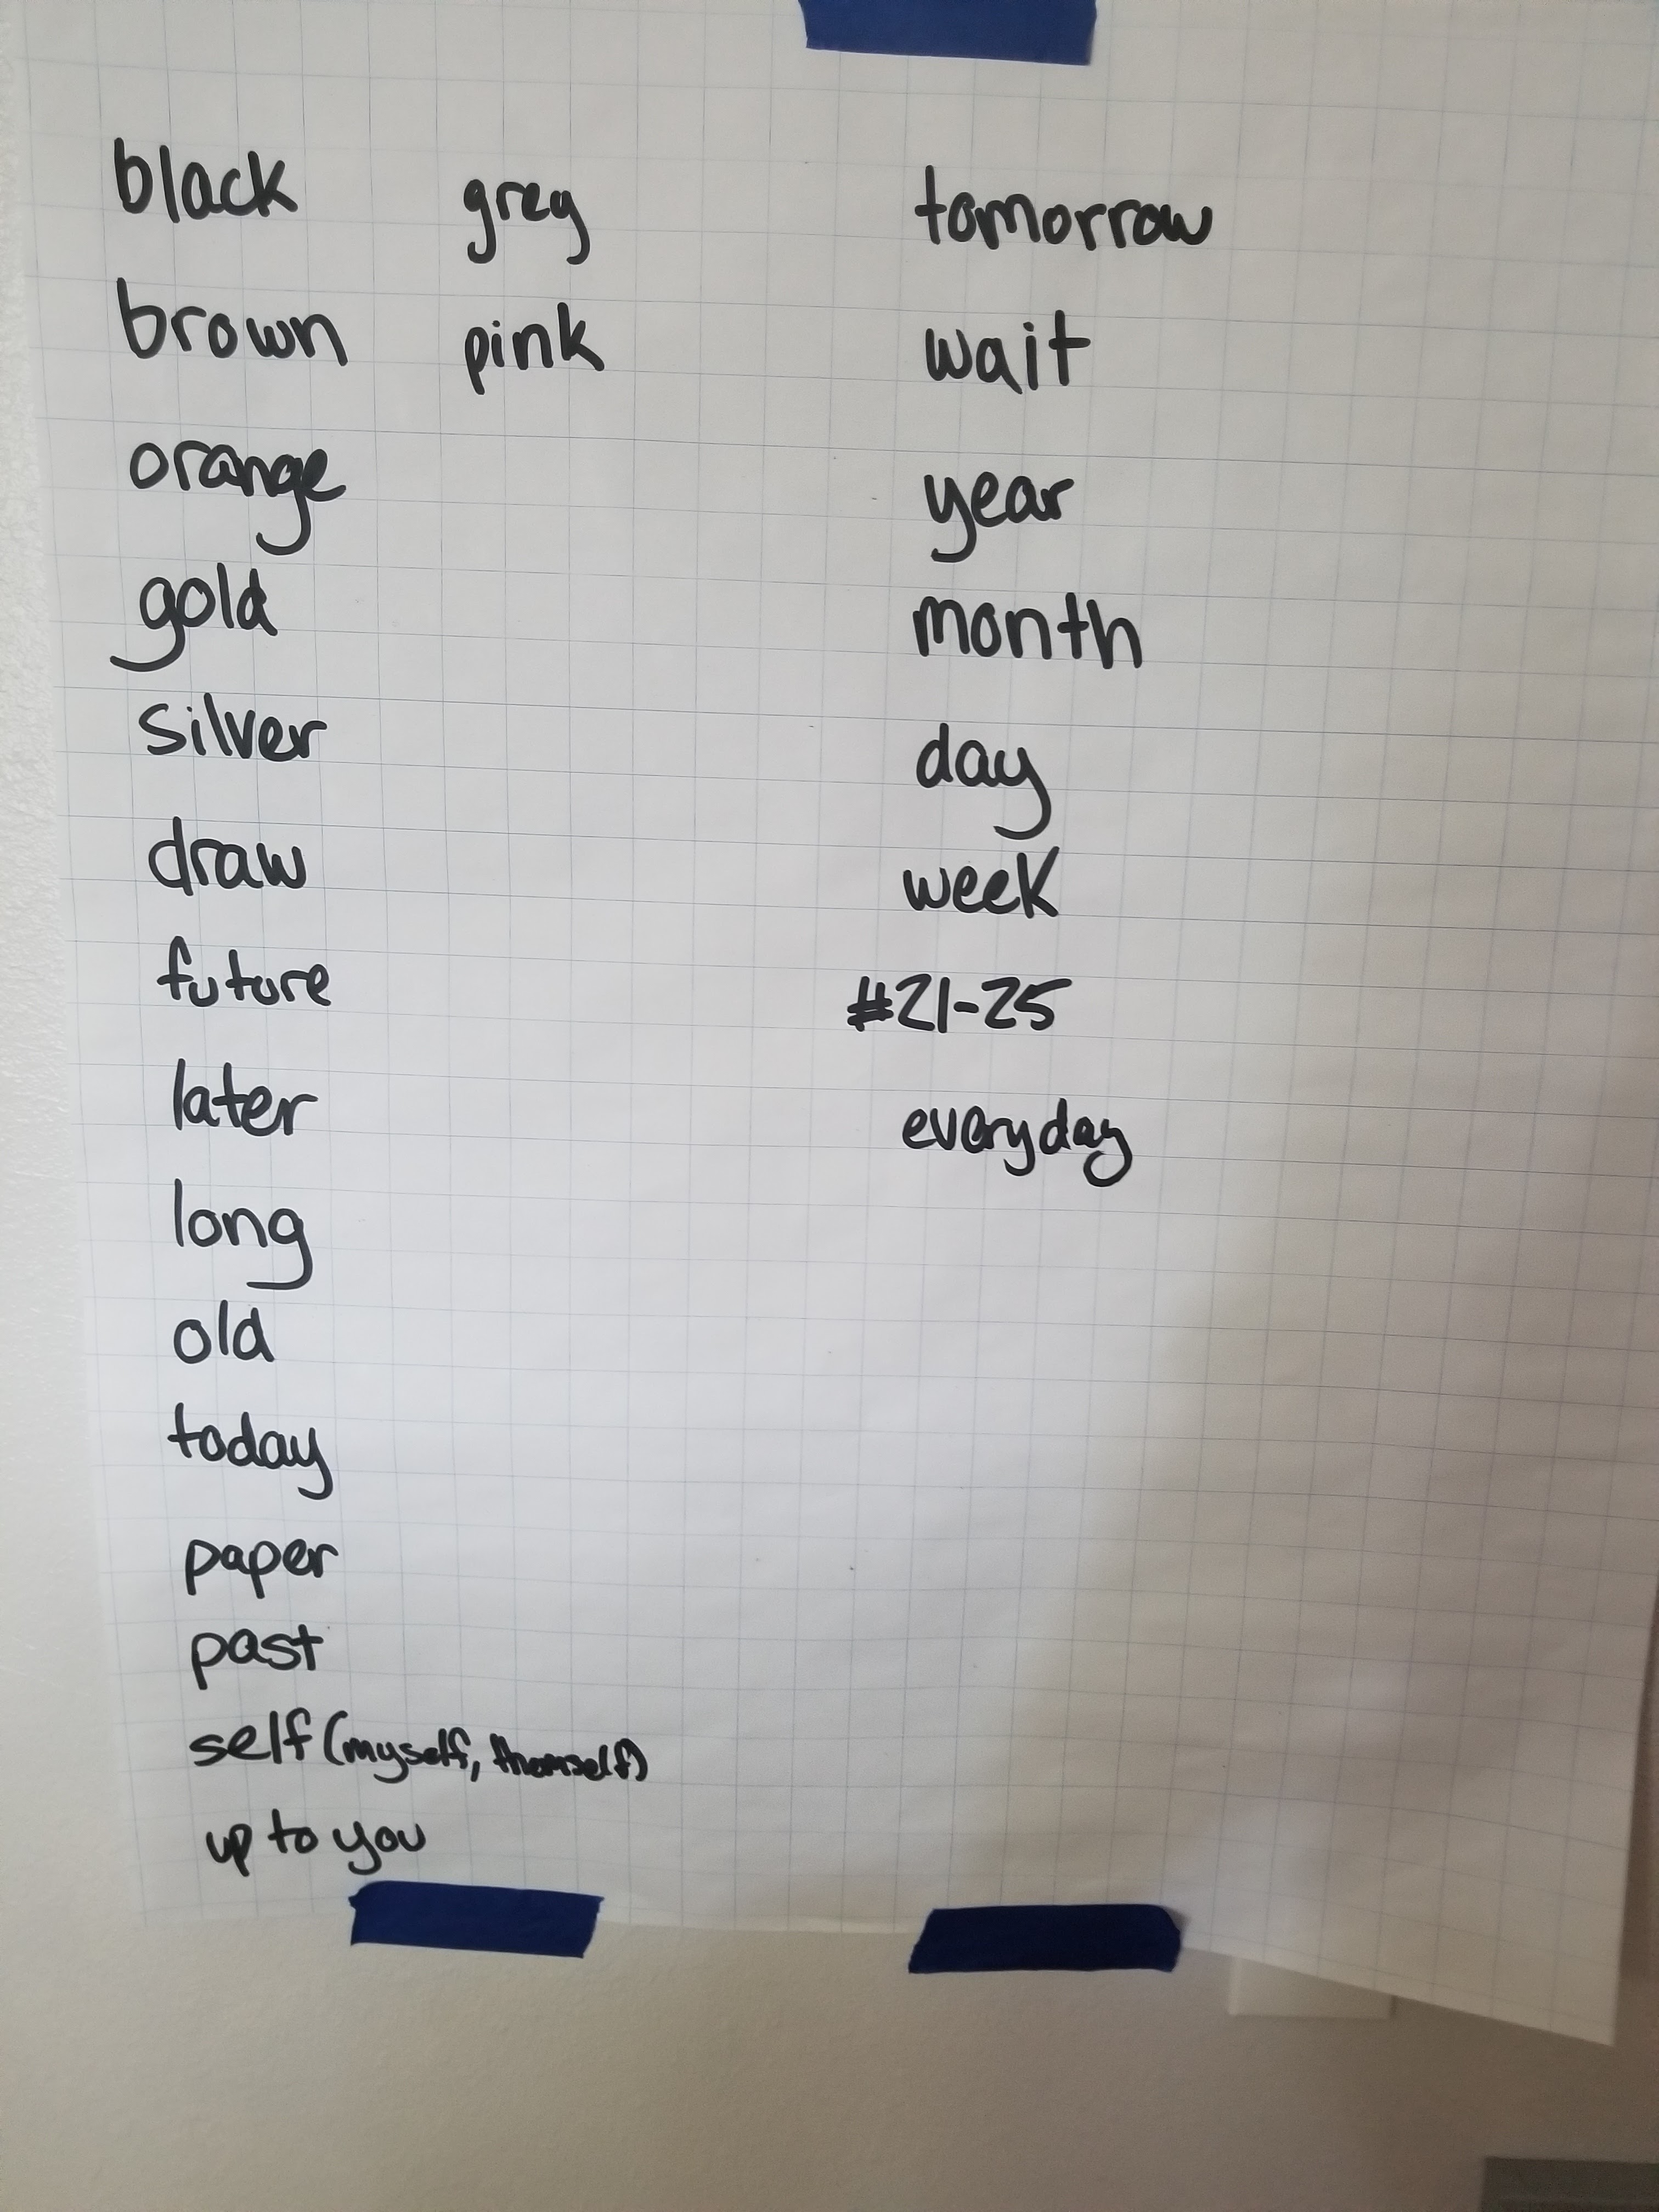 black
brown
orange
gold
silver
draw
future
later
long
old
today
paper
past
self (myself, themself)
up to you
grey
pink
tomorrow
wait
year
month
day
week
#21-25
everyday